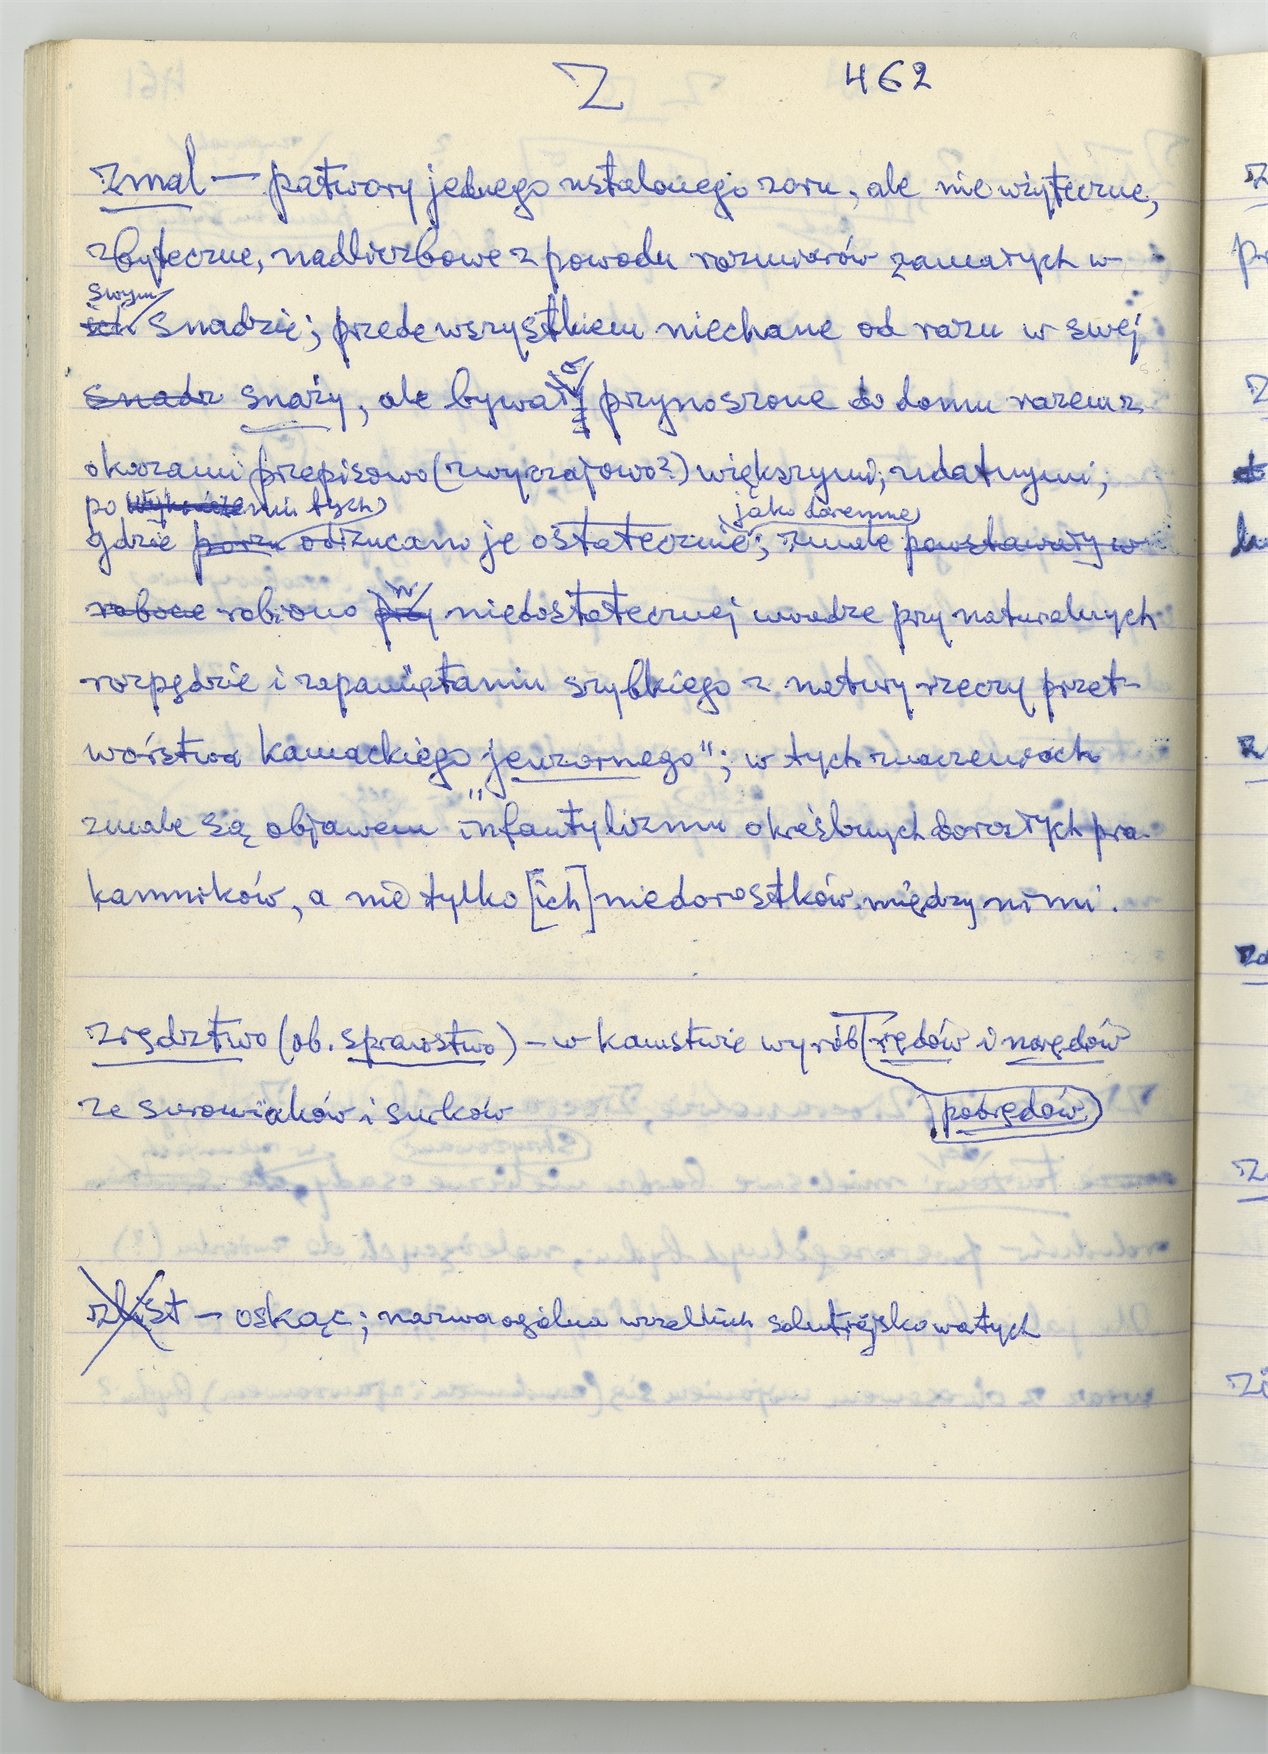 Z 462
zmal — patwory jednego ustalonego zoru, ale nieużyteczne,
zbyteczne, nadliczbowe z powodu rozmiarów zamarłych w
swym
ich snadzie; przedewszystkiem niechane od razu w swej
snadz snaży, ale bywały przynoszone do domu razem z
okazami przepisowo (zwyczajowo?) większymi, udatnymi,
po tych
jako daremne
gdzie porzu odrzucano je ostatecznie; zmale powstawały w
robocie robiono przy w niedostatecznej uwadze przy naturalnych
rozpędzie i zapamiętaniu szybkiego z natury rzeczy przet-
wórstwa kamackiego „jeuzornego"; w tych znaczeniach
zmale są objawem infantylizmu określonych dorosłych pra-
kamników, a nie tylko [ich] niedorostków między nimi.
zrędztwo (ob. sprawstwo) – w kamstwie wyrób rędów i narędów
ze surowiaków i surków
pobrędów
– oskąc; nazwa ogólna wszelkich solutrejskowatych